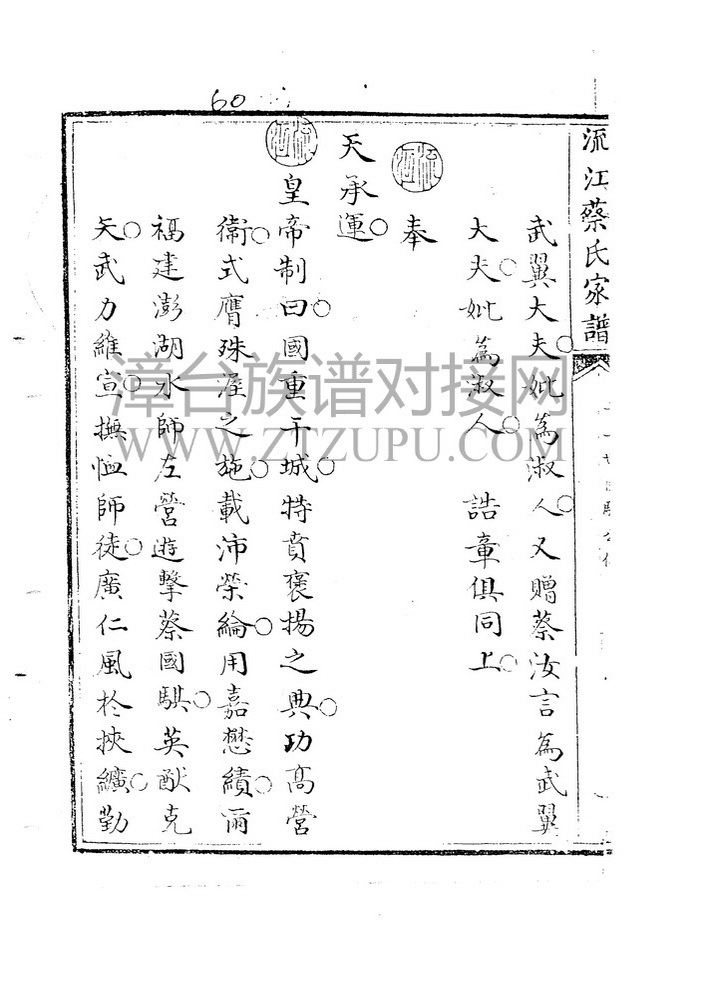 60
流江蔡氏家譜
武翼大夫妣為淑人又贈蔡汝言為武翼
大夫妣為淑人 誥章俱同上
奉
天承運
皇帝制曰國重干城特賁褒揚之典功高營
衞式膺殊渥之施載沛榮綸用嘉懋績爾
福建澎湖水師左營遊擊蔡國騏英猷克
矢武力維宣撫恤師徒廣仁風於挾纊勤
漳台族谱对接网
WWW.ZTZUPU.COM